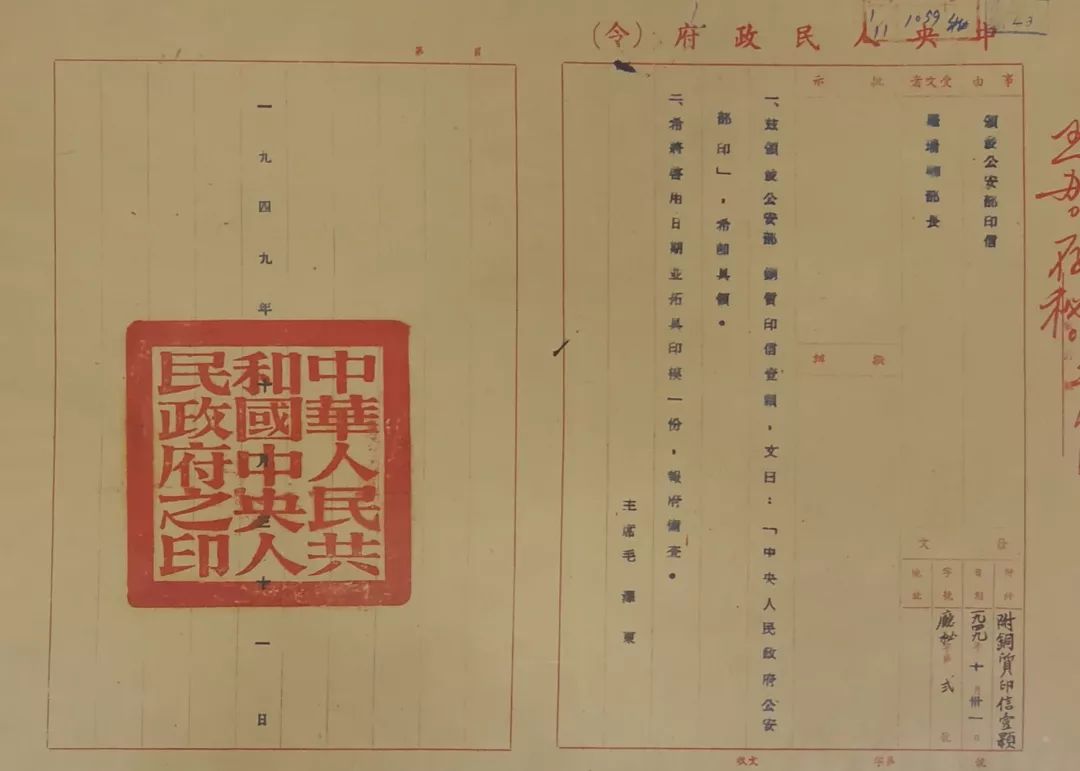 中央人民政府（令）
事由
頒發公安部印信
受文者
羅瑞卿部長
批示
擬辦
發文
附件
附銅質印信壹顆
日期
一九四九年十月卅一日
字號
廳秘字第弍號
地址
一、茲頒發公安部銅質印信壹顆，文曰：「中央人民政府公安
部印」，希卽具領。
二、希將啓用日期並拓具印模一份，報府備查。
主席毛澤東
一九四九年十月三十一日
中華人民共
和國中央人
民政府之印
第 頁
收文 字第 號
1059